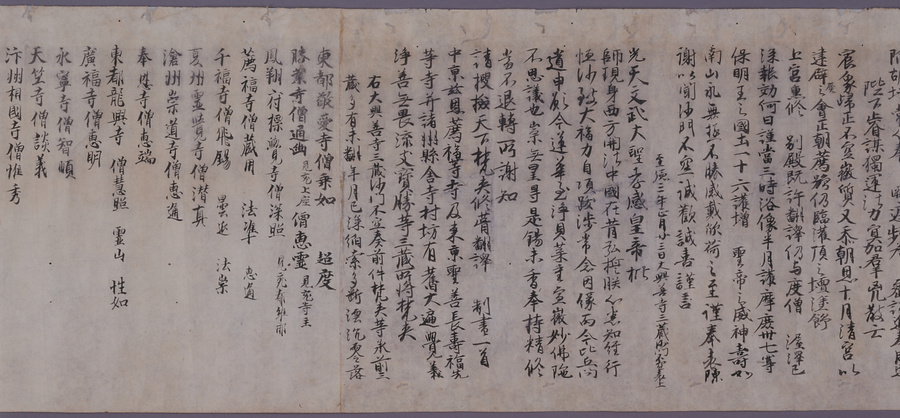 陛下睿謀獨運法力冥加群兇散亡
宸象歸正不空微質又忝朝恩十月清宮以
建辟之會正朝薦號仍臨灌頂之壇塗飾
上宮熏修 別殿既許翻譯仍与度僧 渥澤已
深報効何日謹當三時浴像半月護摩庶卅七尊
保明王之國土一十六護增 聖帝之威神壽如
南山永無極不勝感戴欣荷之至謹奉表陳
謝以聞沙門不空誠歡誠喜謹言
至德三年正月廿三日大興善寺三藏沙門不空上表
光天文武大聖孝感皇帝批
師現身西方開法中國在育弘持朕心悉知經行
恒沙殁大福力自頂跋涉常念因緣而令此兵
道申願今蓮華至淨貝葉重宣微妙佛隨
不思議也崇無量等是錫來香奉持精修
當不退轉所謝知
請搜撿天下梵夾修葺翻譯 制書一首
中京慈恩薦福等寺及東京聖善長壽福先
等寺并諸州縣舍寺村坊有舊大遍覺義
淨善無畏流支寶勝等三藏所將梵夾
右大興善寺三藏沙門不空奏前件梵夾等承前三
藏多有未翻年月已深絛索多斷湮沉零落
東都敬愛寺僧乘如 超度
勝業寺僧通幽 見充上座 僧惠靈 見充寺主
鳳翔府 寺僧深照
薦福寺僧藏用 法準 惠通
千福寺僧飛錫 曇泌 法崇
夏州靈覺寺僧潛真
滄州崇道寺僧惠通
奉恩寺僧惠端
東都龍興寺 僧慧照 靈山 性如
廣福寺僧惠明
永寧寺僧智順
天竺寺僧談義
汴州相國寺僧惟秀